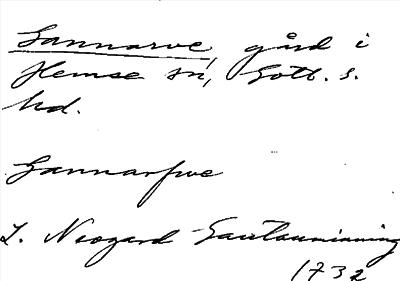 Gannarve, gård i
Hemse sn, Gotl. s.
hd.
Gannarfwe
L. Neogard Gautauminning
1732